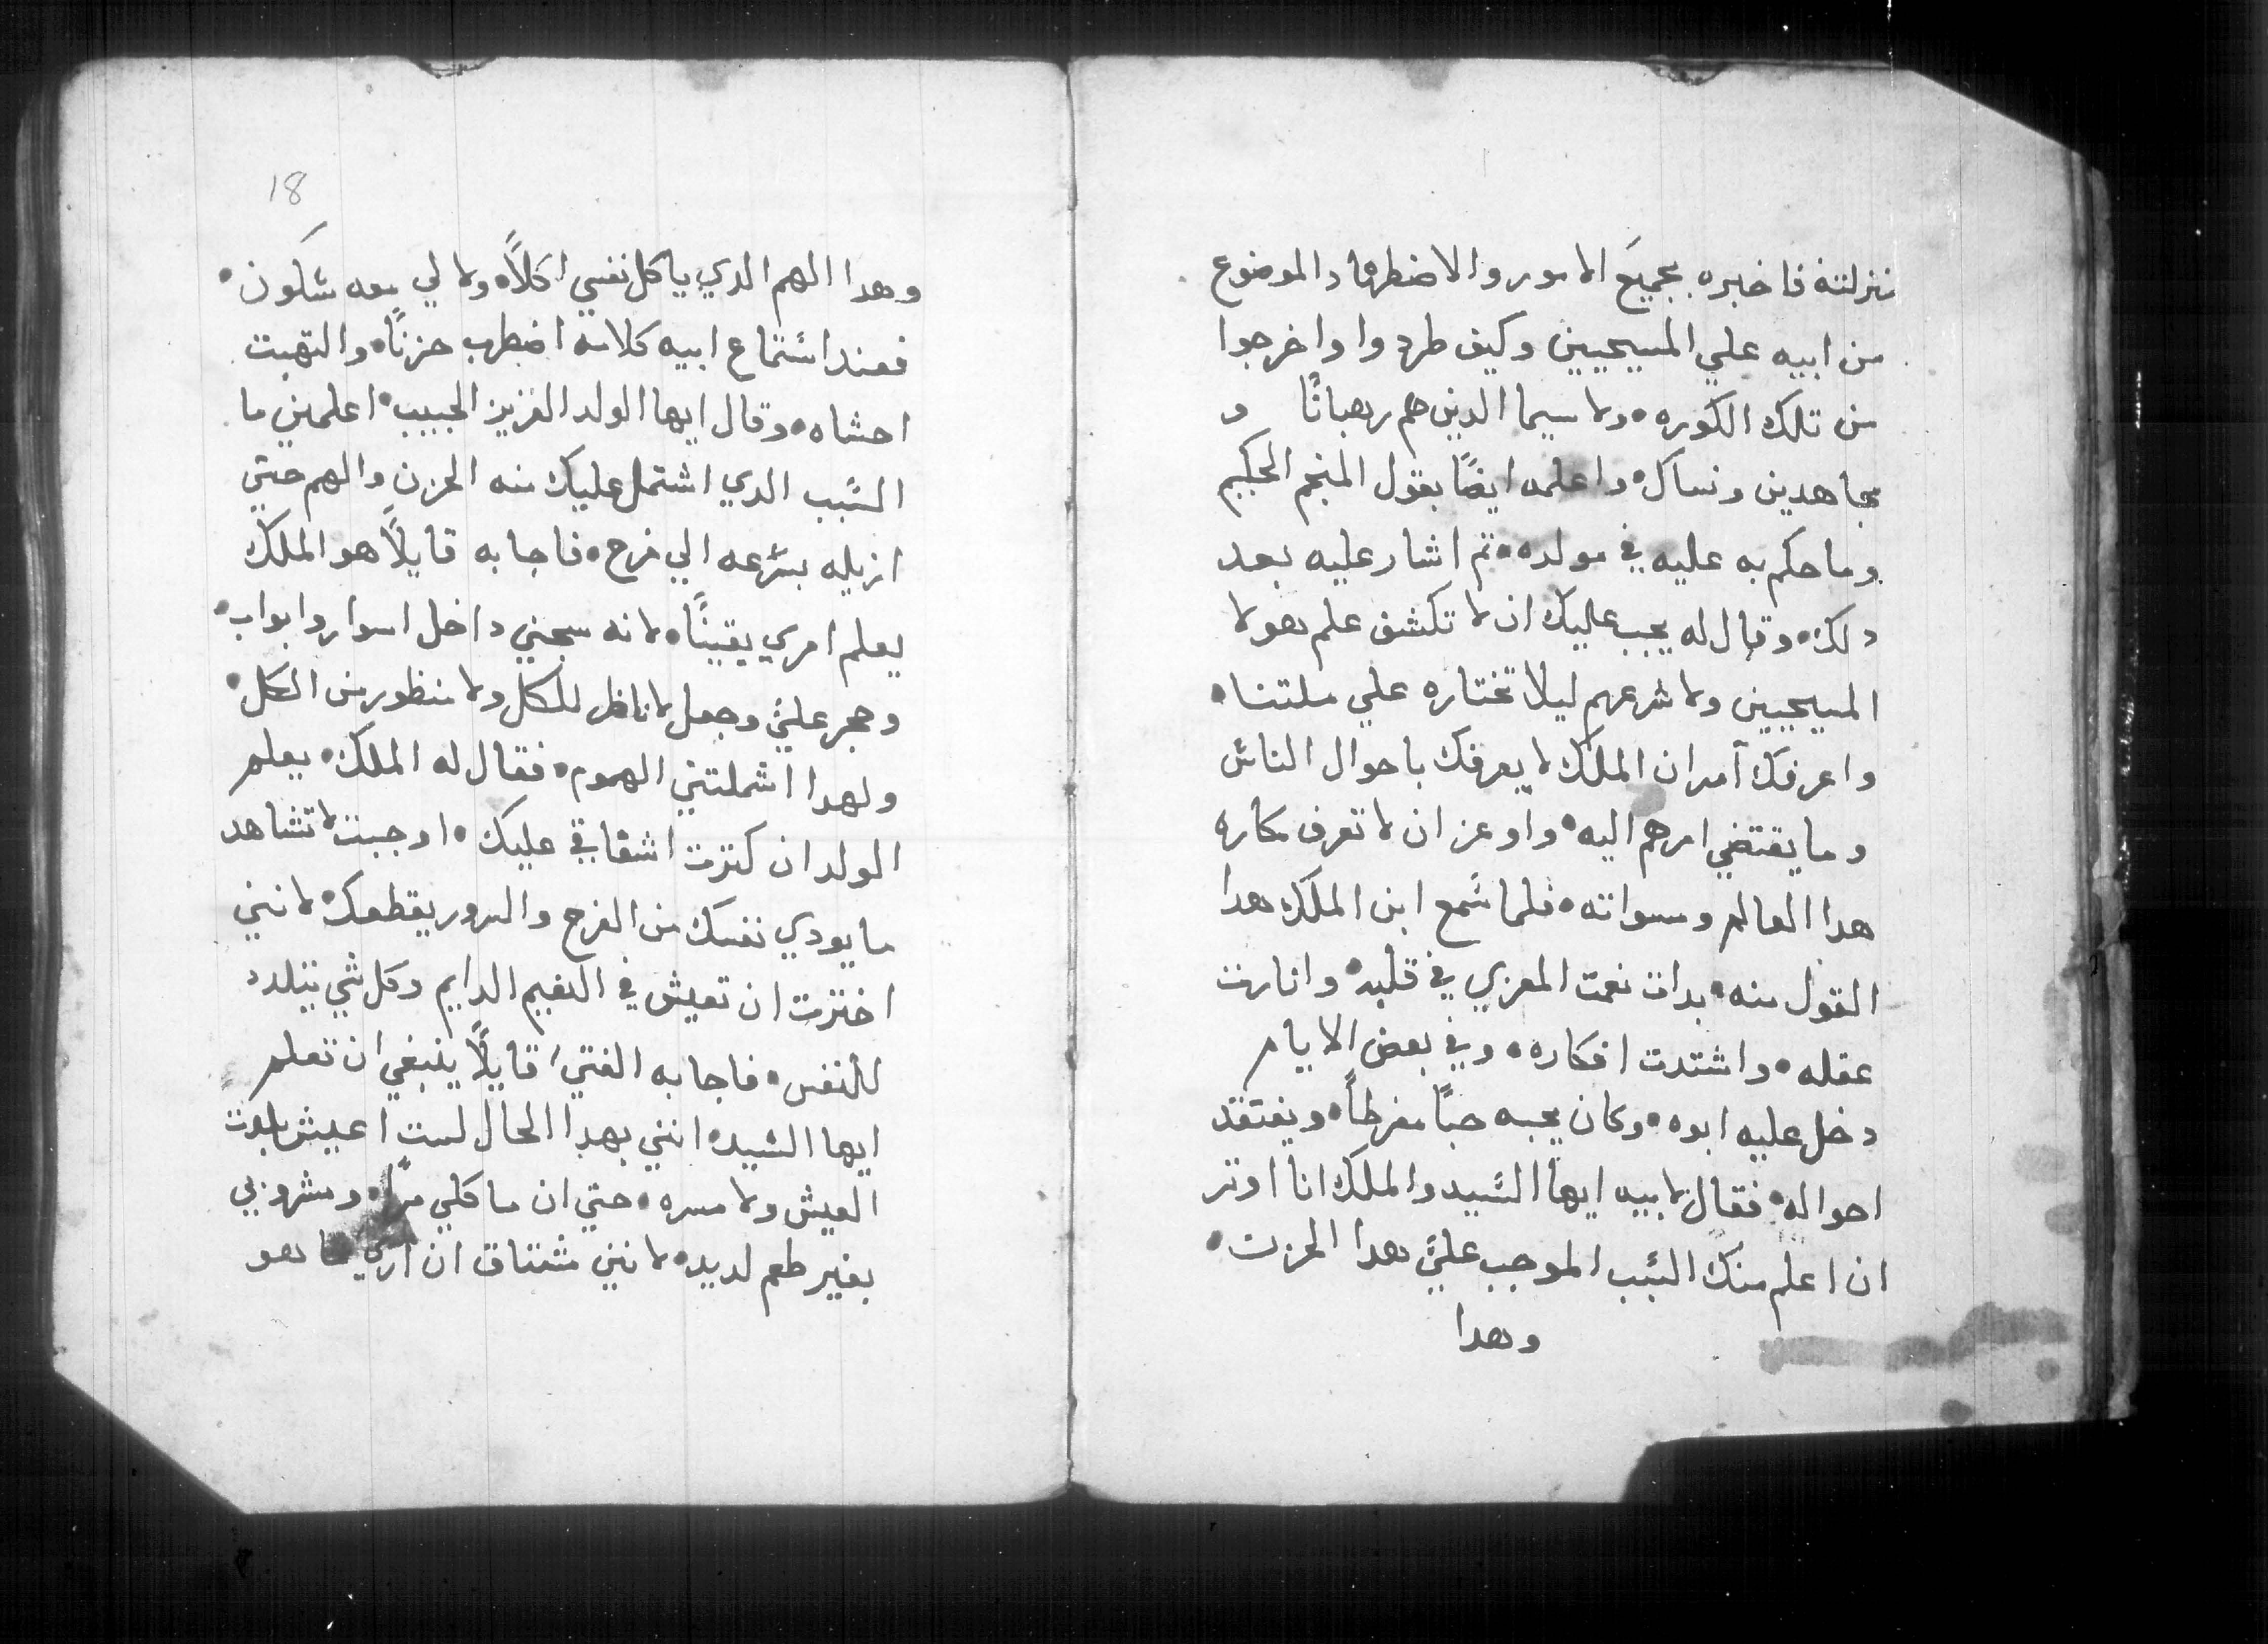 نزلته فاخبره بجميع الامور والاضطرهاد الموضوع
من ابيه علي المسيحيين وكيف طردوا واخرجوا
من تلك الكوره ولا سيما الدين هم رهبانًا و
مجاهدين ونساك واعلمه ايضًا بقول المنجم الحكيم
وما حكم به عليه في مولده تم اشار عليه بعد
دلك وقال له يجب عليك ان لا تكشف علم هولا
المسيحيين ولا شرعهم ليلا تختاره علي ملتنا
واعرفك آمر ان الملك لا يعرفك باحوال الناس
وما يقتضي امرهم اليه واوعز ان لا تعرف مكاره
هدا العالم ومسواته فلما سمع ابن الملك هدا
القول منه بدات نعمت المعزي في قلبه وانارت
عقله واشتدت افكاره وفي بعض الايام
دخل عليه ابوه وكان يحبه حبًا مفرطاً ويفتقد
احواله فقال لابيه ايها السيد والملك انا اوتر
ان اعلم منك السبب الموجب عليَّ هدا الحزن
وهدا
18
وهدا الهم الدي ياكل نفسي اكلاً ولا لي معه سكون
فعند استماع ابيه كلامه اضطرب حزنًا والتهبت
احشاه وقال ايها الولد العزيز الحبيب اعلمني ما
السبب الدي اشتمل عليك منه الحزن والهم حتي
ازيله بسرعه الي فرح فاجابه قايلاً هو الملك
يعلم امري يقينًا لانه سجني داخل اسوار وابواب
وحجر عليَّ وجعل لا ناظر للكل ولا منظور من الكل
ولهدا اشملتني الهموم فقال له الملك يعلم
الولد ان كترت اشفاقي عليك اوجبت لا تشاهد
ما يودي نفسك من الفرح والسرور يقطعك لانني
اخترت ان تعيش في النعيم الدايم وكل شي يتلدد
للنفس فاجابه الفتي قايلاً ينبغي ان تعلم
ايها السيد انني بهدا الحال لست اعيش بلدت
العيش ولا مسره حتي ان ماكلي مرًا ومشروبي
بغير طعم لديد لانني مشتاق ان اري ما هو